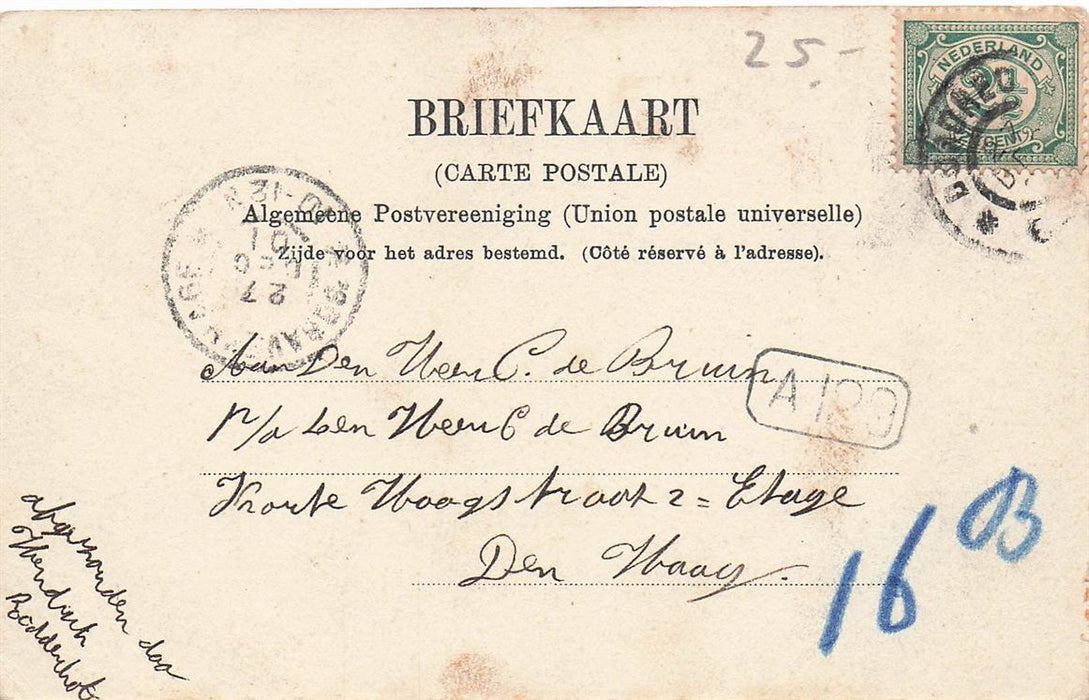 25.-
NEDERLAND
2½
CENT
BRIEFKAART
(CARTE POSTALE)
Algemeene Postvereeniging (Union postale universelle)
Zijde voor het adres bestemd. (Côté réservé à l'adresse).
'SGRAVENHAGE
10-12V
27
DEC
01
Aan Den Heer C. de Bruin
p/a den Heer C de Bruin
A 120
Korte Hoogstraat 2= Etage
Den Haag.
16 B
afgezonden doo
Hendrik